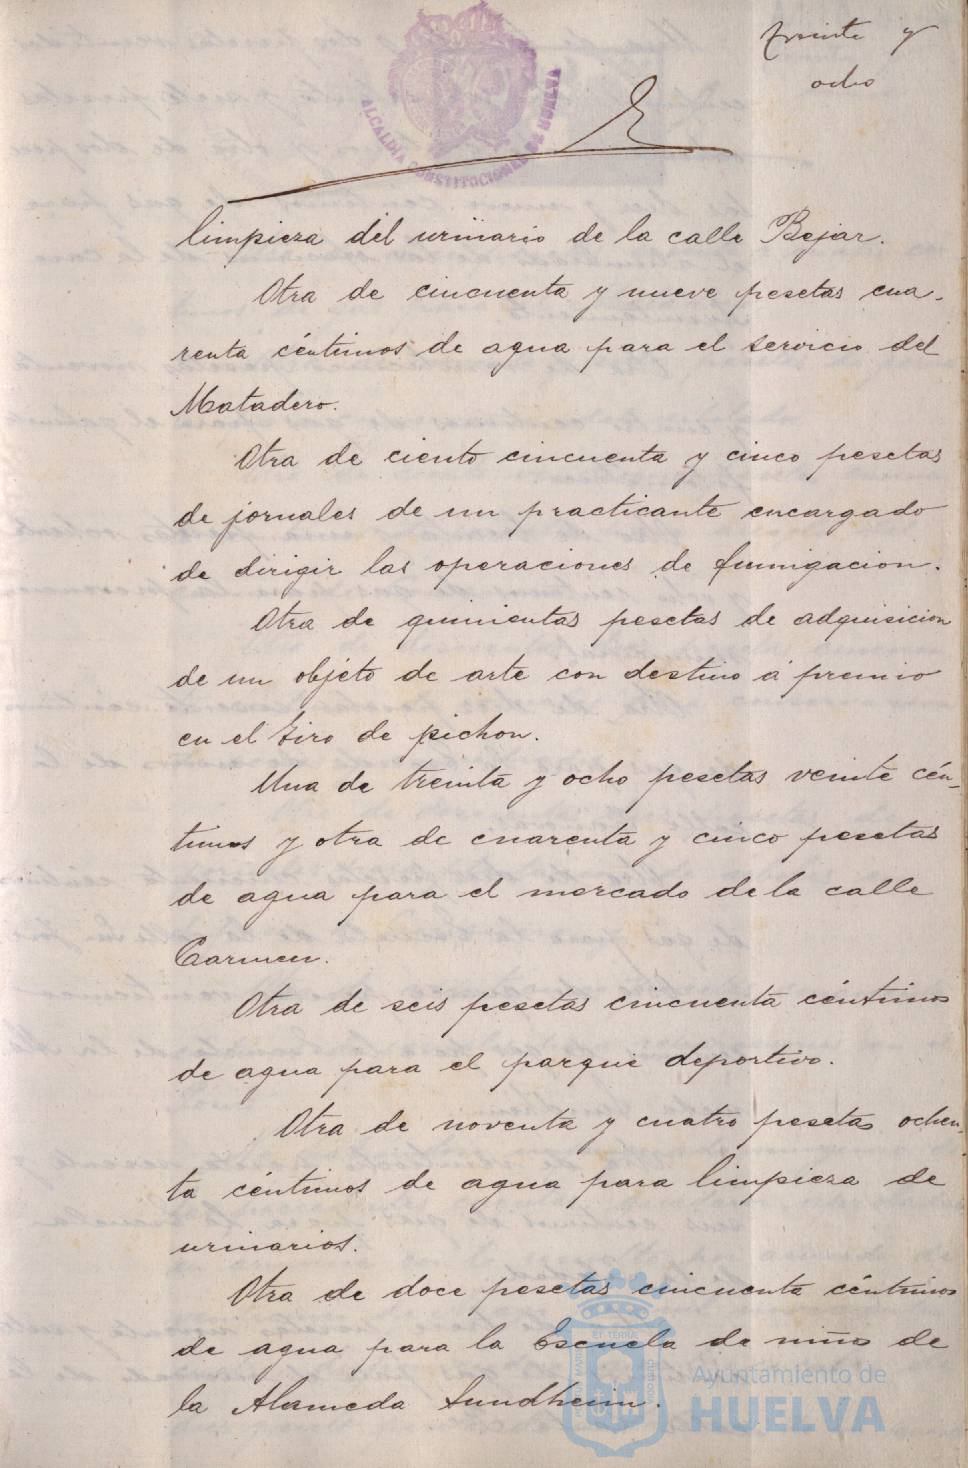 treinta y
ocho
ALCALDIA CONSTITUCIONAL DE HUELVA
limpieza del urinario de la calle Bejar.
Otra de cincuenta y nueve pesetas cua-
renta céntimos de agua para el servicio del
Matadero.
Otra de ciento cincuenta y cinco pesetas
de jornales de un practicante encargado
de dirigir las operaciones de fumigacion.
Otra de quinientas pesetas de adquisicion
de un objeto de arte con destino á premio
en el tiro de pichon.
Una de treinta y ocho pesetas veinte cén-
timos y otra de cuarenta y cinco pesetas
de agua para el mercado de la calle
Carmen.
Otra de seis pesetas cincuenta céntimos
de agua para el parque deportivo.
Otra de noventa y cuatro pesetas ochen-
ta céntimos de agua para limpieza de
urinarios.
Otra de doce pesetas cincuenta céntimos
de agua para la Escuela de niños de
la Alameda Sundheim.
Ayuntamiento de
HUELVA